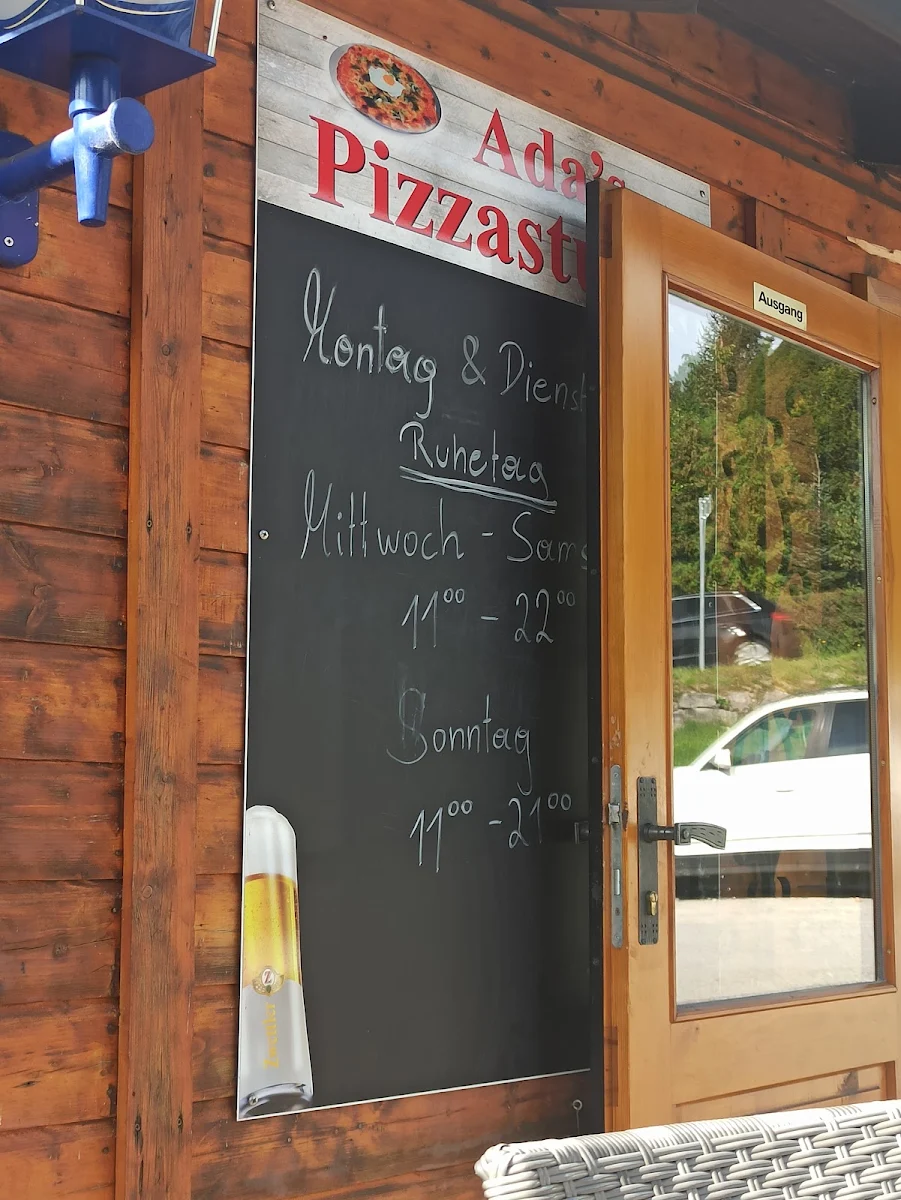 Ada's
Pizzastu
Ausgang
Montag & Dienst
Ruhetag
Mittwoch - Sams
11⁰⁰ - 22⁰⁰
Sonntag
11⁰⁰ - 21⁰⁰
Zwettler